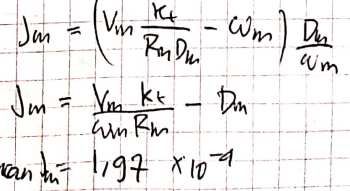 Jm = (Vm Kt / Rm Dm - ωm) Dm / ωm
Jm = Vm Kt / ωm Rm - Dm
Jm = 1,97 × 10⁻⁴